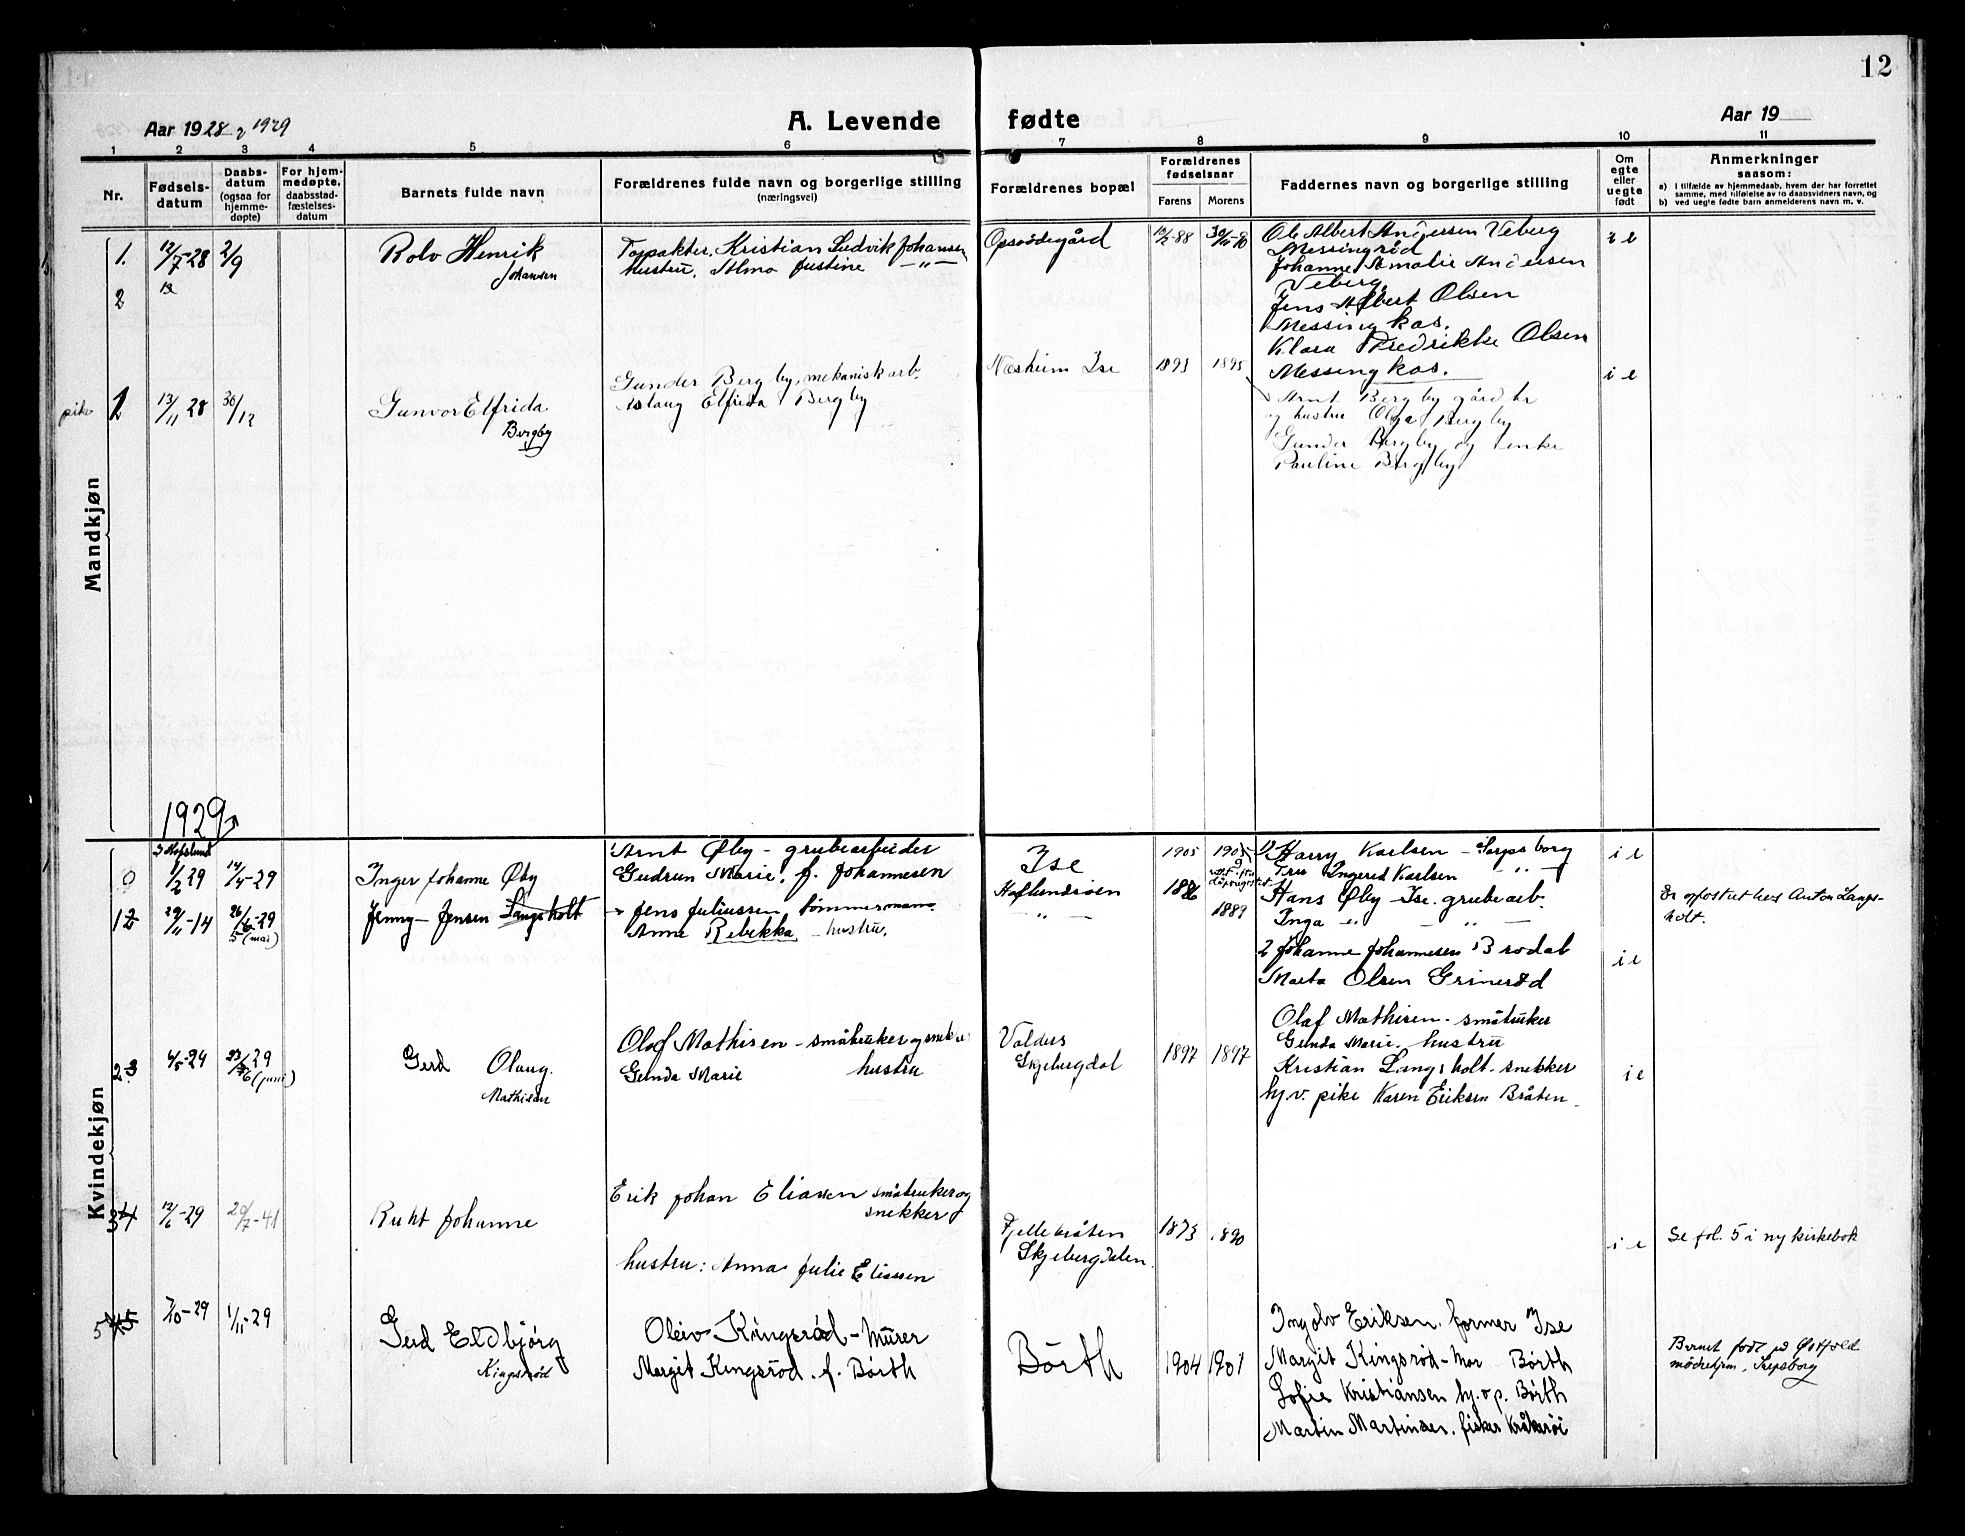 12
Aar 1928 & 1929
A. Levende fødte
Aar 19
1 2 3 4 5 6 7 8 9 10 11
Nr.
Fødsels-
datum
Daabs-
datum
(ogsaa for
hjemme-
døpte)
For hjem-
medøpte,
daabsstad-
fæstelses-
datum
Barnets fulde navn
Forældrenes fulde navn og borgerlige stilling
(næringsvei)
Forældrenes bopæl
Forældrenes
fødselsaar
Farens Morens
Faddernes navn og borgerlige stilling
Om
egte
eller
uegte
født
Anmerkninger
saasom:
a) i tilfælde av hjemmedaab, hvem der har forrettet
samme, med tilføielse av to daabsvidners navn, og
b) ved uegte fødte barn anmelderens navn m. v.
Mandkjøn
1. 12/7-28 2/9
Rolv Henrik
Johansen
Kristian Ludvik Johansen
hustru, Alma Justine —"—
Opsødegård
10/2-88 30/11-90
Ole Albert Andersen Veberg
Messingrød
Johanne Amalie Andersen
Veberg
Jens Albert Olsen
Messing kas.
Klara Fredrikke Olsen
Messing kas.
i e
2 12
pike 1 13/11 28 30/12
Gunvor Elfrida
Bergby
Gunder Bergby, mekanisk arb.
Aslaug Elfrida Bergby
Næsheim Ise
1893 1895
Arnt Bergby gårdbr
og hustru Olga Bergby
Gunder Bergby og enke
Pauline Bergby
i e
1929
Kvindekjøn
I Hafslund
0 1/2 29 14/4-29
Inger Johanne Øby
Arnt Øby - grubearbeider
Gudrun Marie, f. Johannesen
Ise
1905
2 Harry Karlsen - Sarpsborg
Fru Ingerid Karlsen —"—
Hans Øby - Ise. grubearb.
Inga —"— —"—
i e
1 2 29/11-14 26/6-29
5 (mai)
Jenny Jensen Langsholt
Jens Juliussen tømmermann
Anne Rebekka - hustru.
Haflundsøen
—"—
1886
1889
2 Johanne Johannesen Brodal
Marta Olsen Grinerød
i e
Er opfostret hos Anton Langs-
holt.
2 3 4/5-29 23/6 29
(juni)
Gerd Olaug.
Mathisen
Olaf Mathisen - småbruker og snekker
Gunda Marie hustru
Valders
Skjebergdal
1897 1897
Olaf Mathisen - småbruker
Gunda Marie, hustru
Kristian Langsholt - snekker
hj.v. pike Karen Eriksen Bråten
i e
3 4 12/6-29 20/7-41
Ruht Johanne
Erik Johan Eliassen småbruker og
snekker
hustru: Anna Julie Eliassen
Fjellebråten
Skjebergdalen.
1873 1890
i e
Se fol. 5 i ny kirkebok
5 7/10-29 1/11-29
Gerd Eldbjørg
Kingsrød
Oleiv Kingsrød - Murer
Margit Kingsrød. f. Børth
Börth
1904 1901
Ingolv Eriksen. former Ise
Margit Kingsrød - Mor Børth
Sofie Kristiansen hj.v.p. Börth
Martin Martinsen, fisker Kråkerøi
Barnet født på Østfold
mödrehjem, Sarpsborg